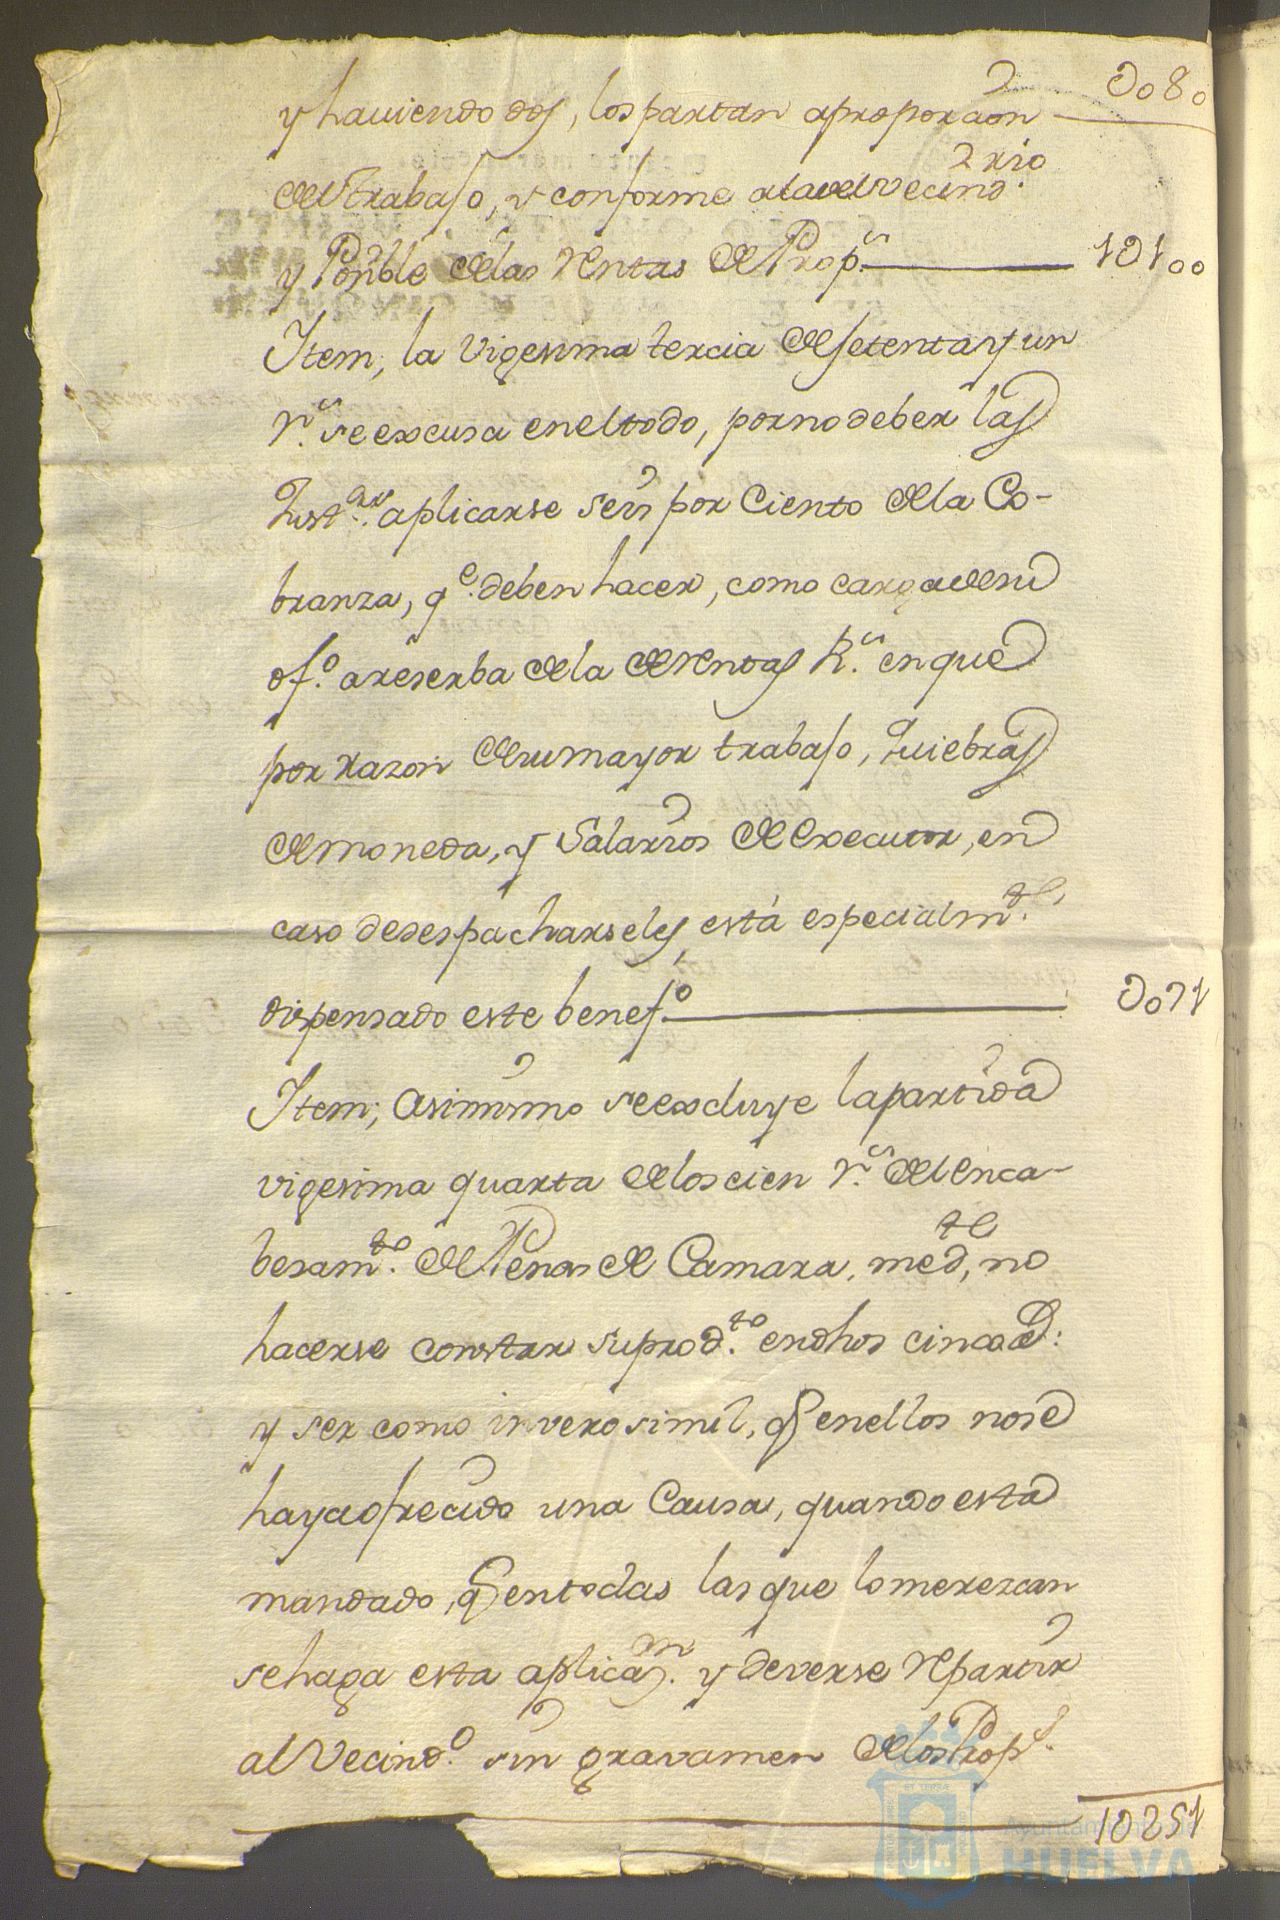 y haviendo dos, los partan a proporcion 2 Do80
del trabajo, y conforme a la del vecind.rio
y Ponble de las Rentas de Prop.s 1D100
Item, la Vigesima tercia de setenta y un
r.s se excusa en el todo, por no deber las
Just.as aplicarse seis por Ciento de la Co-
branza, q.e deben hacer, como carga de su
of.o a reserba de la de Rentas R.s en que
por razon de su mayor trabajo, Quiebras
de moneda, y Salarios de Executor, en
caso de despacharseles, está especialm.te
dispensado este benef.o Do71
Item; Asimismo se excluye la partida
vigesima quarta de los cien r.s del Enca-
besam.to de Penas de Camara, med.te no
hacerse constar su prod.to en dhos cinco a.s:
y ser como inverosimil, q en ellos no se
haya ofrecido una Causa, quando esta
mandado, q en todas las que lo merezcan
se haga esta aplicas.on y deverse repartir
al Vecind.o sin gravamen de los Prop.s
1D251
Ayuntamiento de
HUELVA